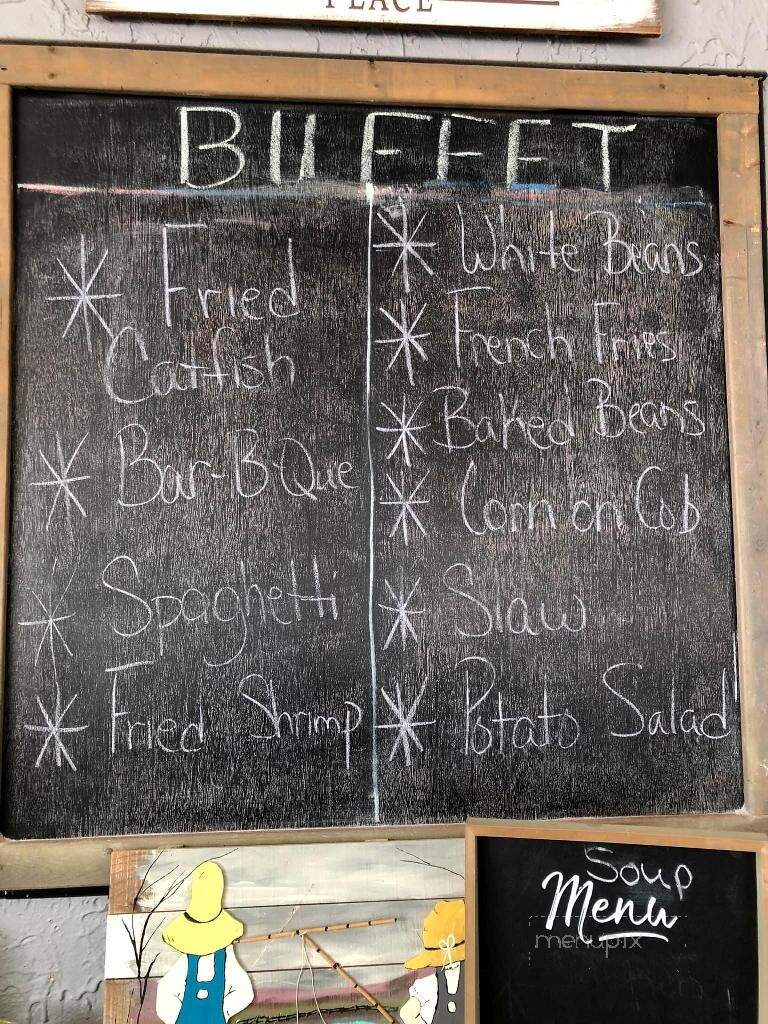 PLACE
BUFFET
* Fried
Catfish
* Bar-B-Que
* Spaghetti
* Fried Shrimp
* White Beans
* French Fries
* Baked Beans
* Corn on Cob
* Slaw
* Potato Salad
Soup
Menu
menupix